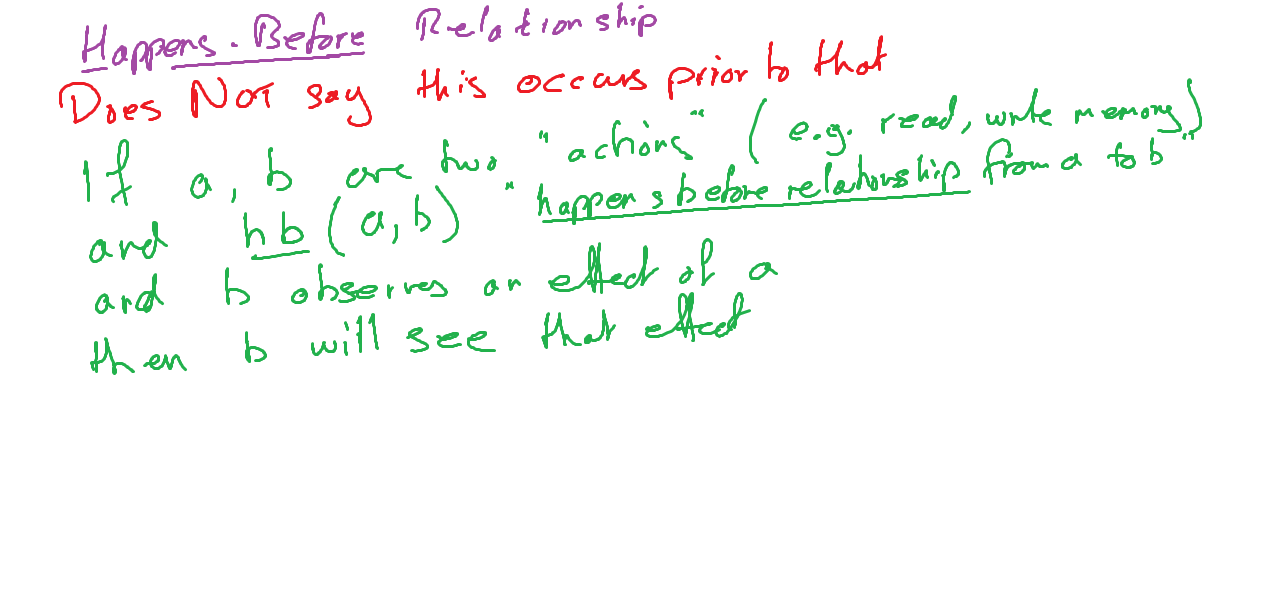 Happens-Before Relationship
Does NOT say this occurs prior to that
If a, b are two "actions" (e.g. read, write memory)
and hb(a,b) "happens before relationship from a to b"
and b observes an effect of a
then b will see that effect